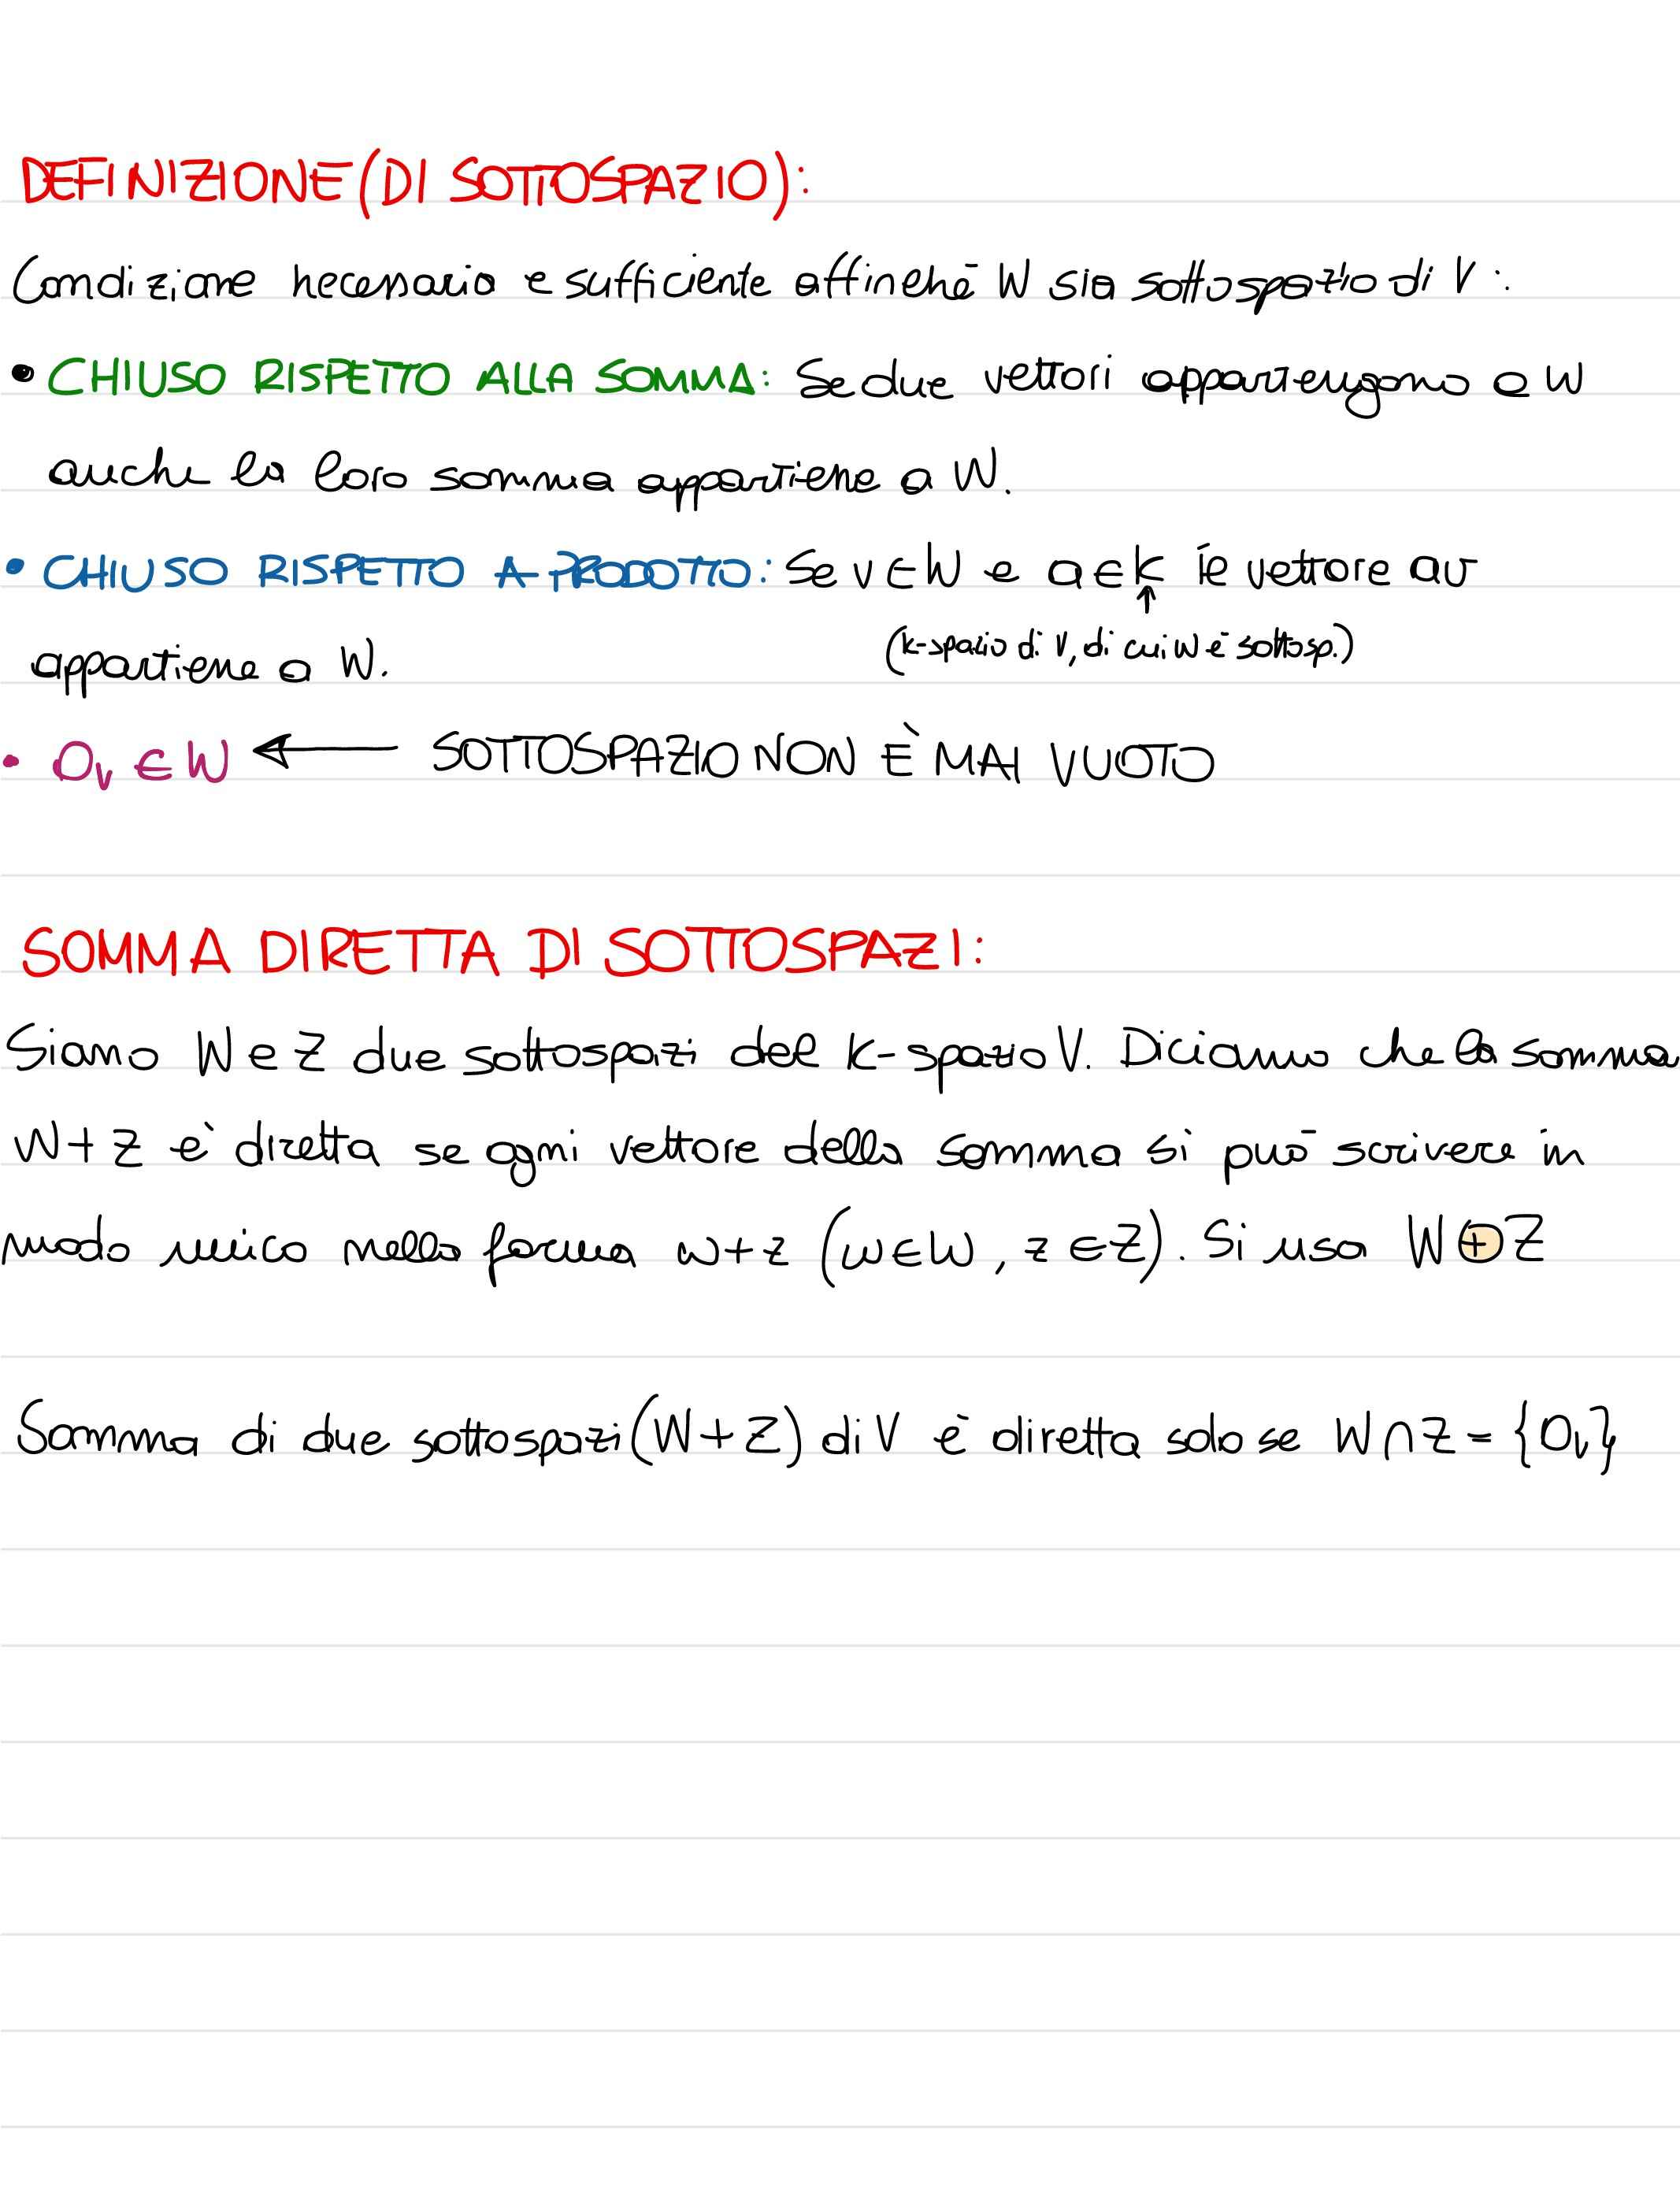 DEFINIZIONE (DI SOTTOSPAZIO):
Condizione necessaria e sufficiente affinchè W sia sottospazio di V:
• CHIUSO RISPETTO ALLA SOMMA: Se due vettori appartengono a W
anche la loro somma appartiene a W.
• CHIUSO RISPETTO A PRODOTTO: Se v ∈ W e a ∈ K il vettore av
(K-spazio di V, di cui W è sottosp.)
appartiene a W.
• 0ᵥ ∈ W ← SOTTOSPAZIO NON È MAI VUOTO
SOMMA DIRETTA DI SOTTOSPAZI:
Siano W e Z due sottospazi del K-spazio V. Diciamo che la somma
W+Z è diretta se ogni vettore della somma si può scrivere in
modo unico nella forma w+z (w∈W, z∈Z). Si usa W⊕Z
Somma di due sottospazi (W+Z) di V è diretta solo se W∩Z = {0ᵥ}